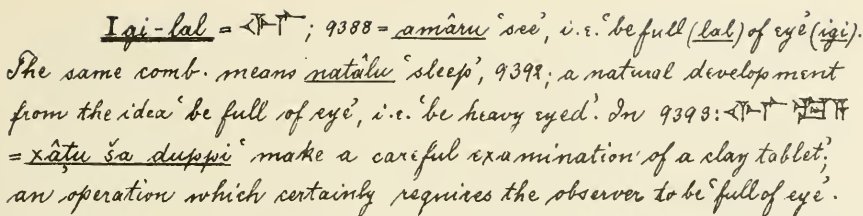 Igi-lal = 𒅆𒇲; 9388 = amâru ‘see’, i.e. ‘be full (lal) of eye’ (igi).
The same comb. means natâlu ‘sleep’, 9392; a natural development
from the idea ‘be full of eye’, i.e. ‘be heavy eyed’. In 9393: 𒅆𒇲
= xâṭu ša duppi ‘make a careful examination’ of a clay tablet;
an operation which certainly requires the observer to be ‘full of eye’.